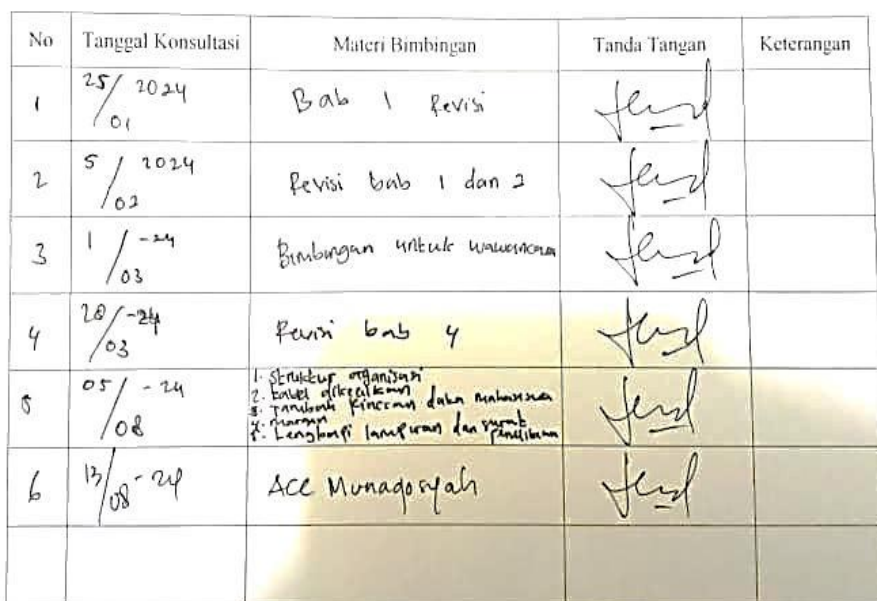 No Tanggal Konsultasi Materi Bimbingan Tanda Tangan Keterangan
1 25/01 2024 Bab 1 Revisi
2 5/02 2024 Revisi bab 1 dan 2
3 1/03 -24 Bimbingan untuk wawancara
4 28/03 -24 Revisi bab 4
5 05/08 -24 1. Struktur organisasi
2. tabel dikecilkan
3. Tambah kinerja data mahasiswa
4. margin
5. Lengkapi lampiran dan surat
penelitian
6 13/08 -24 ACC Munaqosyah